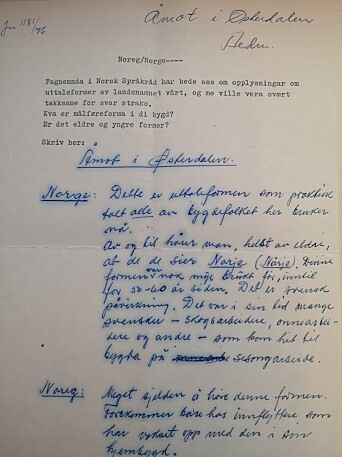 Jnr 1181/76
Åmot i Østerdalen
Hedm.
Noreg/Norge----
Fagnemnda i Norsk Språkråd har bede oss om opplysningar om
uttaleformer av landsnamnet vårt, og me ville vera svært
takksame for svar straks.
Kva er målføreforma i di bygd?
Er det eldre og yngre former?
Skriv her:
Åmot i Østerdalen.
Norge: Dette er uttaleformen som praktisk
talt alle av bygdefolket her bruker
nå.
Av og til hører man, helst av eldre,
at de sier Norje (Nårje). Denne
formen var nok mye brukt før, inntil
for 50-60 år siden. Det er svensk
påvirkning. Det var i sin tid mange
svensker – skogsarbeidere, onnearbei-
dere og andre – som kom hit til
bygda på sesongarbeide.
Noreg: Meget sjelden å høre denne formen.
Forekommer bare hos innflyttere som
har vokset opp med den i sin
hjembygd.